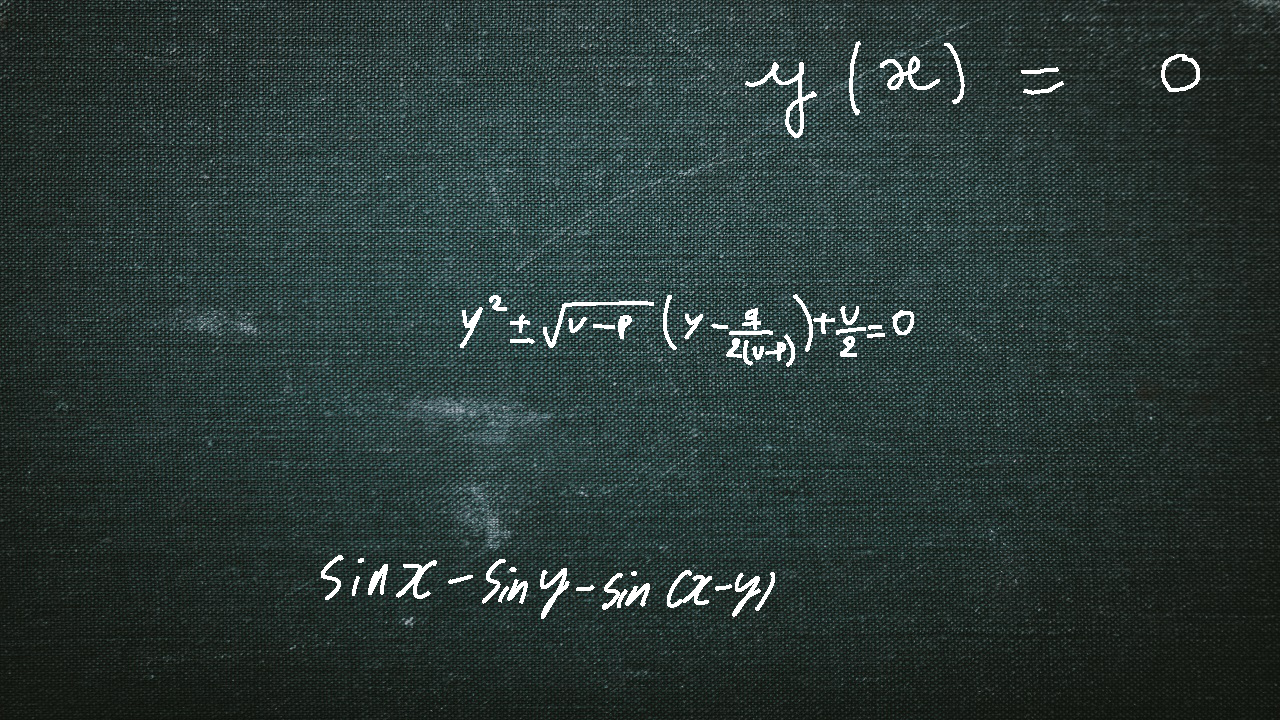 y(x) = 0
y² ± √(v-p) (y - q/2(v-p)) + v/2 = 0
sin x - sin y - sin (x-y)